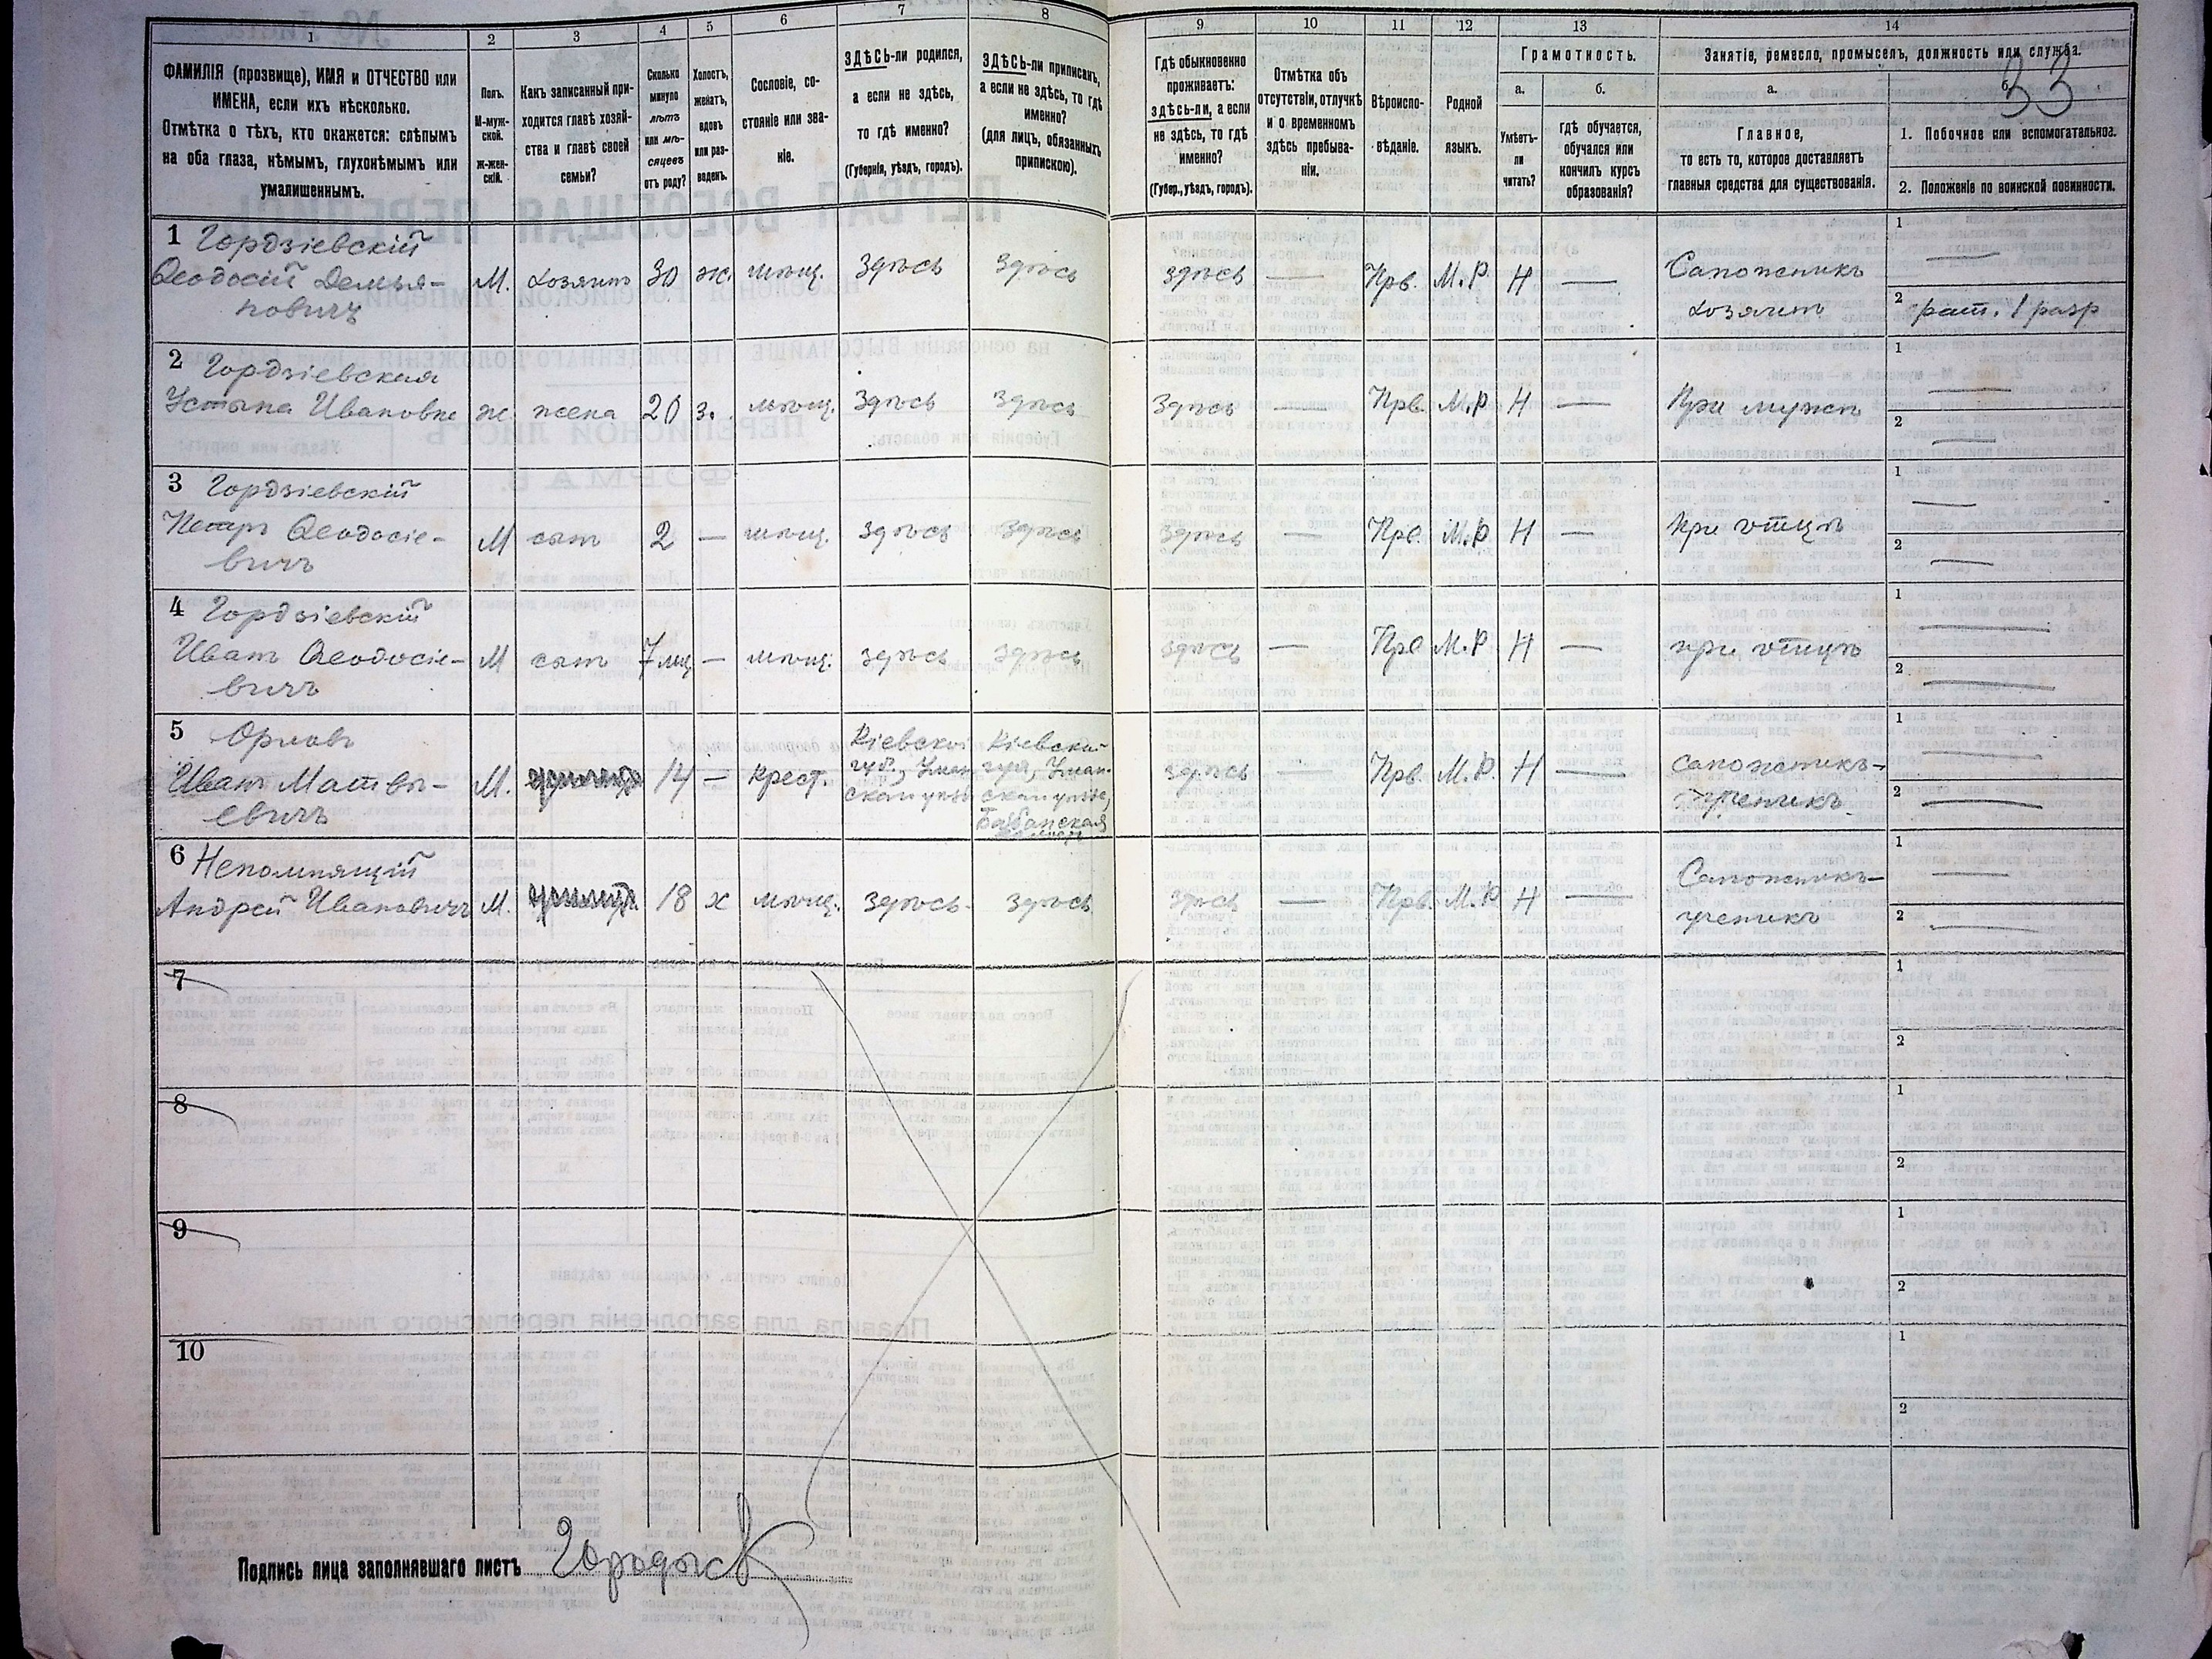 1 2 3 4 5 6 7 8 9 10 11 12 13 14
ФАМИЛІЯ (прозвище), ИМЯ и ОТЧЕСТВО или
ИМЕНА, если ихъ нѣсколько.
Отмѣтка о тѣхъ, кто окажется: слѣпымъ
на оба глаза, нѣмымъ, глухонѣмымъ или
умалишеннымъ.
Полъ.
М-муж-
ской.
ж-жен-
скій.
Какъ записанный при-
ходится главѣ хозяй-
ства и главѣ своей
семьи?
Сколько
минуло
лѣтъ
или мѣ-
сяцевъ
отъ роду?
Холостъ,
женатъ,
вдовъ
или раз-
веденъ.
Сословіе, со-
стояніе или зва-
ніе.
ЗДѢСЬ-ли родился,
а если не здѣсь,
то гдѣ именно?
(Губернія, уѣздъ, городъ).
ЗДѢСЬ-ли приписанъ,
а если не здѣсь, то гдѣ
именно?
(для лицъ, обязанныхъ
припискою).
Гдѣ обыкновенно
проживаетъ:
здѣсь-ли, а если
не здѣсь, то гдѣ
именно?
(Губер., уѣздъ, городъ).
Отмѣтка объ
отсутствіи, отлучкѣ
и о временномъ
здѣсь пребыва-
ніи.
Вѣроиспо-
вѣданіе.
Родной
языкъ.
Грамотность.
а.
Умѣетъ-
ли
читать?
б.
гдѣ обучается,
обучался или
кончилъ курсъ
образованія?
Занятіе, ремесло, промыселъ, должность или служба.
а.
Главное,
то есть то, которое доставляетъ
главныя средства для существованія.
б.
33
1. Побочное или вспомогательное.
2. Положеніе по воинской повинности.
1 Гордзіевскій
Ѳеодосій Демья-
новичъ
М. хозяинъ 30 ж. мѣщ. здѣсь здѣсь здѣсь — Прв. М.Р. Н —
Сапожникъ
хозяинъ
1 —
2 рат. 1 разр
2 Гордзіевская
Устына Ивановна
ж. жена 20 з. мѣщ. здѣсь здѣсь здѣсь — Прв. М.Р Н — При мужѣ
1 —
2 —
3 Гордзіевскій
Петръ Ѳеодосіе-
вичъ
М сынъ 2 — мѣщ. здѣсь здѣсь здѣсь — Прв. М.Р Н — При отцѣ
1 —
2 —
4 Гордзіевскій
Иванъ Ѳеодосіе-
вичъ
М сынъ 7 мц — мѣщ. здѣсь здѣсь здѣсь — Прв М.Р Н — при отцѣ
1 —
2 —
5 Орловъ
Иванъ Матвѣ-
евичъ
М. 14 — Крест.
Кіевской
губ., Уман
скаго уѣзд
Кіевской
губ., Уман-
скаго уѣзд,
Бабанская
здѣсь — Прв. М.Р. Н —
сапожникъ-
ученикъ
1 —
2 —
6 Непомнящій
Андрей Ивановичъ
М. 18 х мѣщ. здѣсь здѣсь здѣсь — Прв. М.Р Н —
Сапожникъ-
ученикъ
1 —
2 —
7
1
2
8
1
2
9
1
2
10
1
2
Подпись лица заполнявшаго листъ